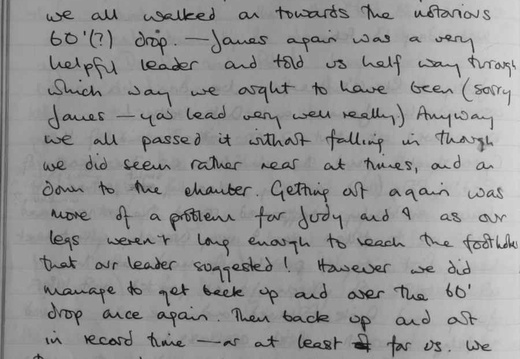 we all walked on towards the notorious
60'(?) drop. — James again was a very
helpful leader and told us half way through
which way we ought to have been (sorry
James — you lead very well really!) Anyway
we all passed it without falling in though
we did seem rather near at times, and on
down to the chamber. Getting out again was
more of a problem for Judy and I as our
legs weren't long enough to reach the footholds
that our leader suggested! However we did
manage to get back up and over the 60'
drop once again. Then back up and out
in record time — or at least for us. We